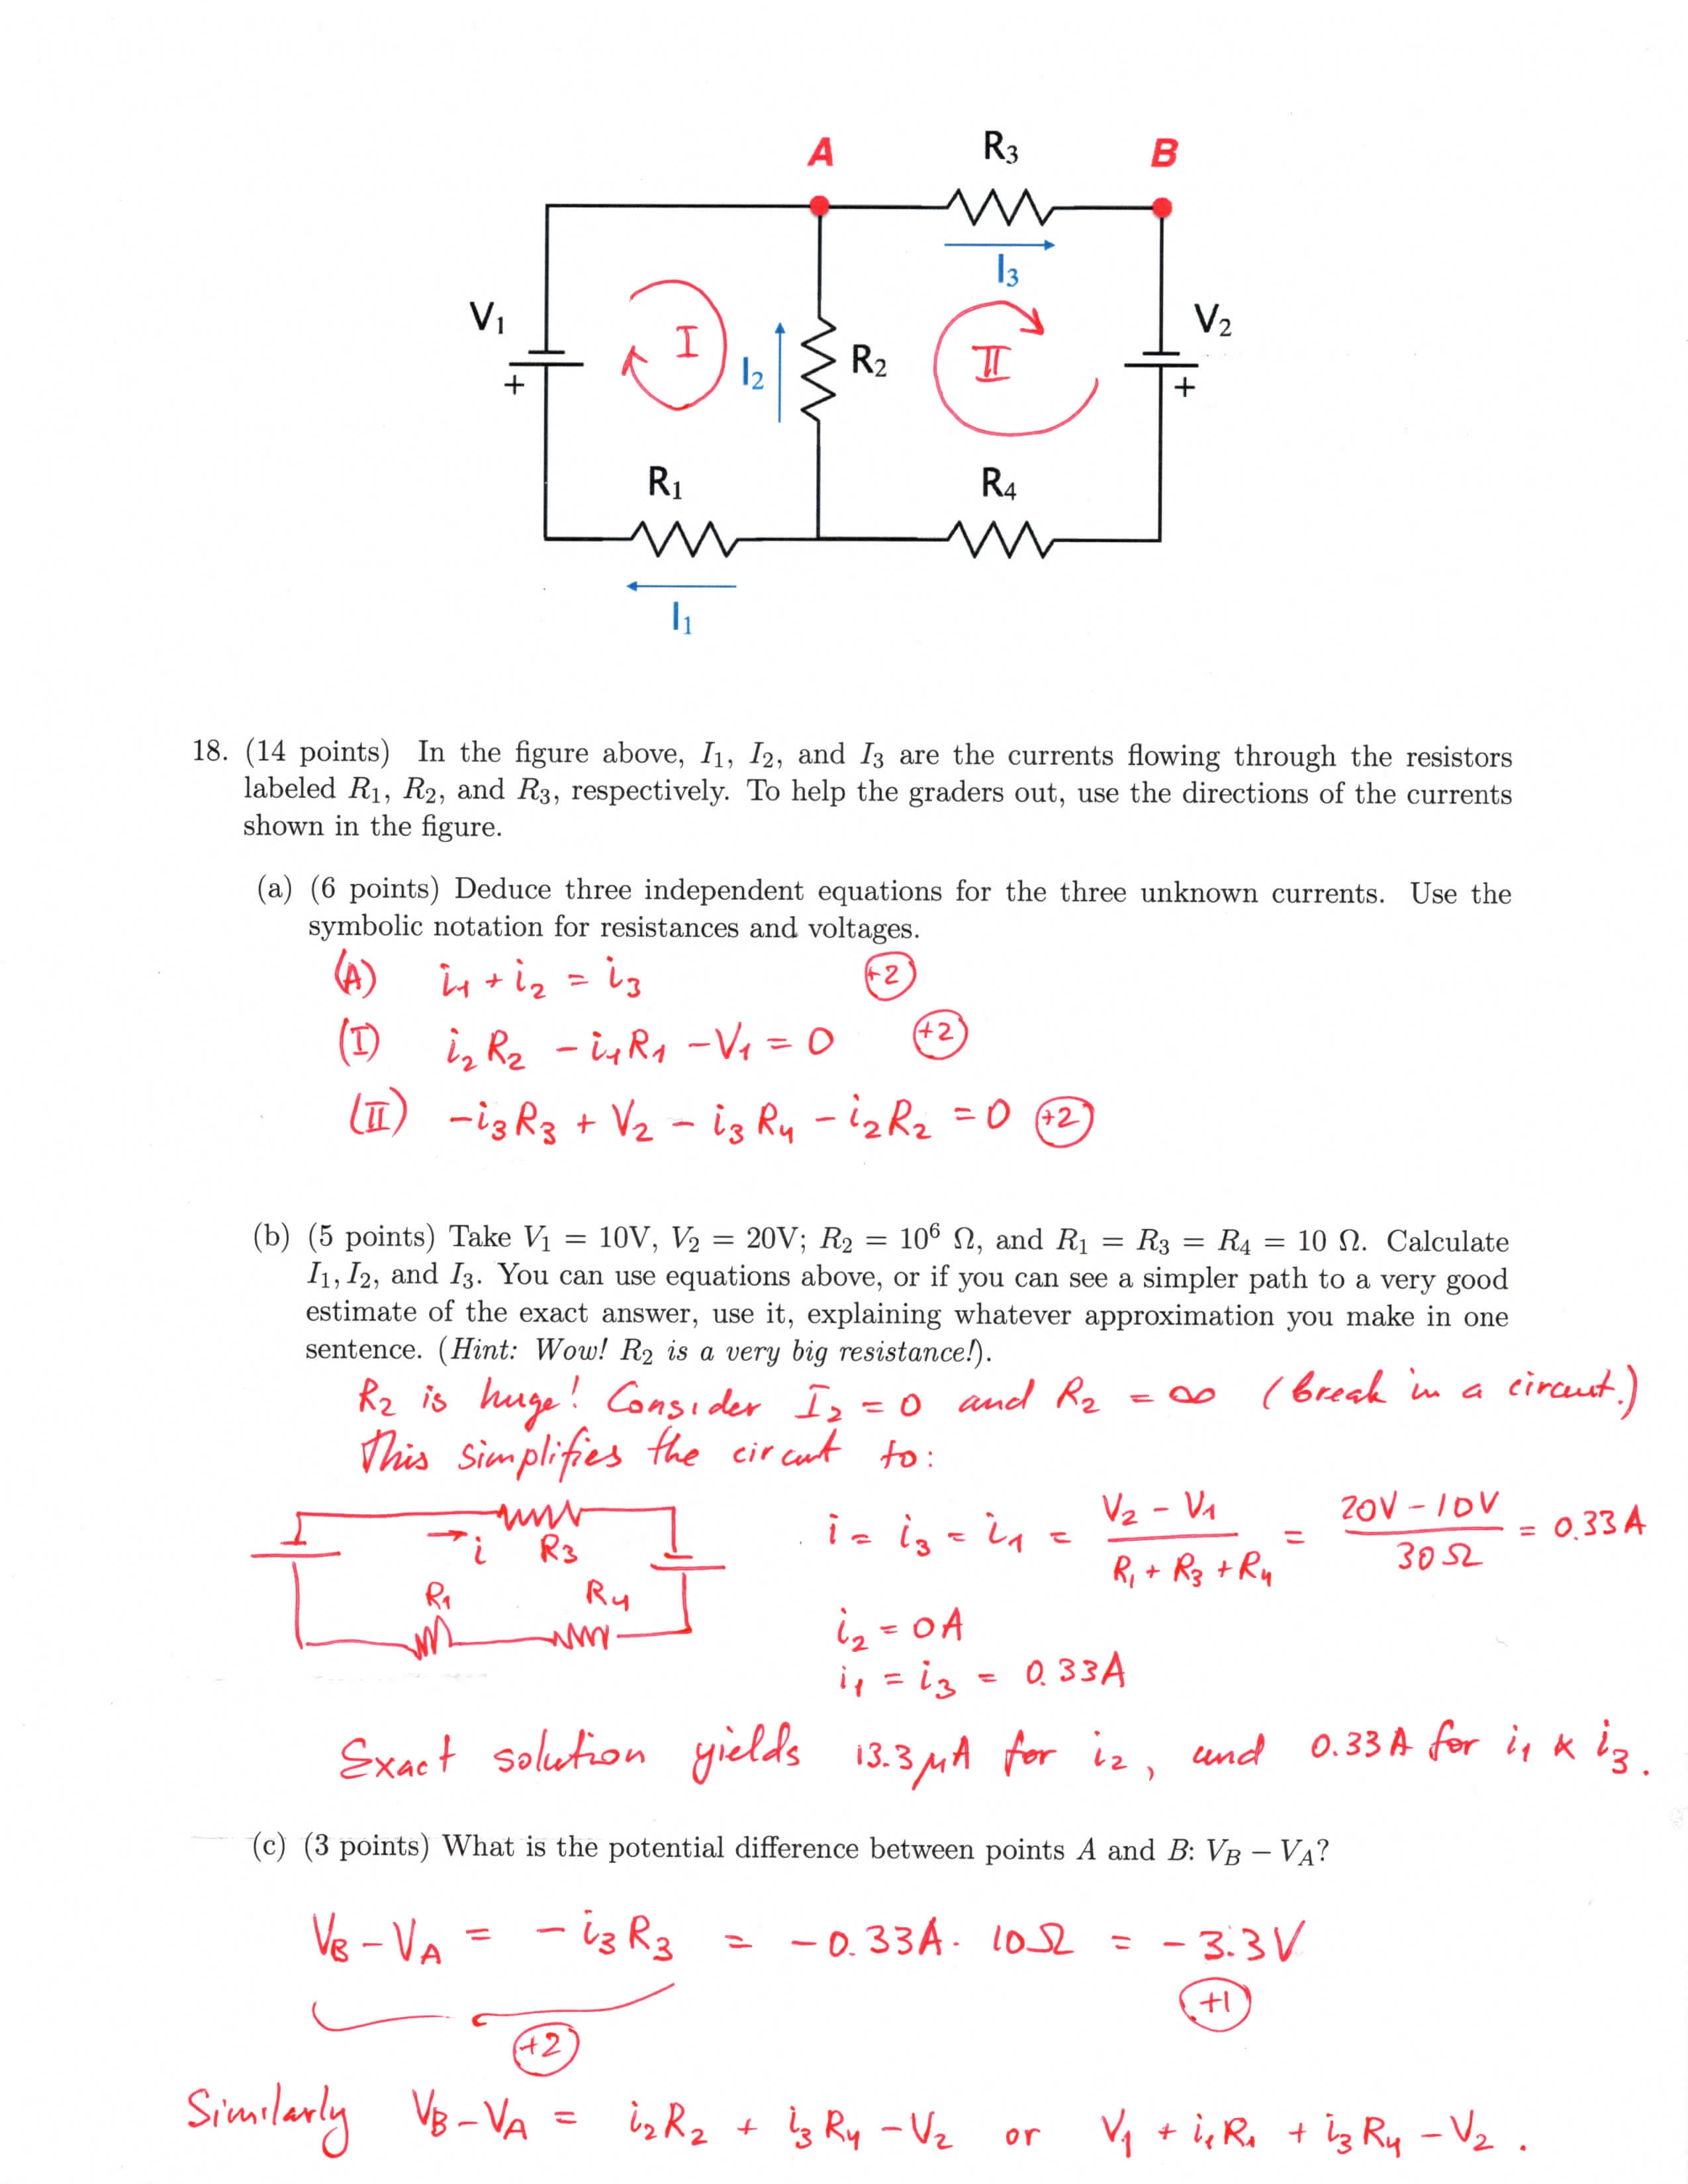 A R₃ B
I₃
V₁ I I₂ R₂ II V₂
+ +
R₁ R₄
I₁
18. (14 points) In the figure above, I₁, I₂, and I₃ are the currents flowing through the resistors
labeled R₁, R₂, and R₃, respectively. To help the graders out, use the directions of the currents
shown in the figure.
(a) (6 points) Deduce three independent equations for the three unknown currents. Use the
symbolic notation for resistances and voltages.
(A) i₁ + i₂ = i₃ +2
(I) i₂R₂ - i₁R₁ - V₁ = 0 +2
(II) -i₃R₃ + V₂ - i₃R₄ - i₂R₂ = 0 +2
(b) (5 points) Take V₁ = 10V, V₂ = 20V; R₂ = 10⁶ Ω, and R₁ = R₃ = R₄ = 10 Ω. Calculate
I₁, I₂, and I₃. You can use equations above, or if you can see a simpler path to a very good
estimate of the exact answer, use it, explaining whatever approximation you make in one
sentence. (Hint: Wow! R₂ is a very big resistance!).
R₂ is huge! Consider I₂ = 0 and R₂ = ∞ (break in a circuit.)
This simplifies the circuit to:
i R₃
R₁ R₄
i = i₃ = i₁ = (V₂ - V₁)/(R₁ + R₃ + R₄) = (20V - 10V)/(30Ω) = 0.33A
i₂ = 0A
i₁ = i₃ = 0.33A
Exact solution yields 13.3μA for i₂, and 0.33A for i₁ & i₃.
(c) (3 points) What is the potential difference between points A and B: V_B − V_A?
V_B - V_A = -i₃R₃ = -0.33A · 10Ω = -3.3V
+1
+2
Similarly V_B - V_A = i₂R₂ + i₃R₄ - V₂ or V₁ + i₁R₁ + i₃R₄ - V₂.